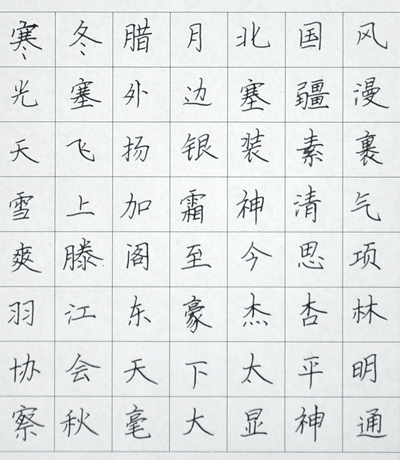 寒冬腊月北国风
光塞外边塞疆漫
天飞扬银装素裹
雪上加霜神清气
爽滕阁至今思项
羽江东豪杰杏林
协会天下太平明
察秋毫大显神通